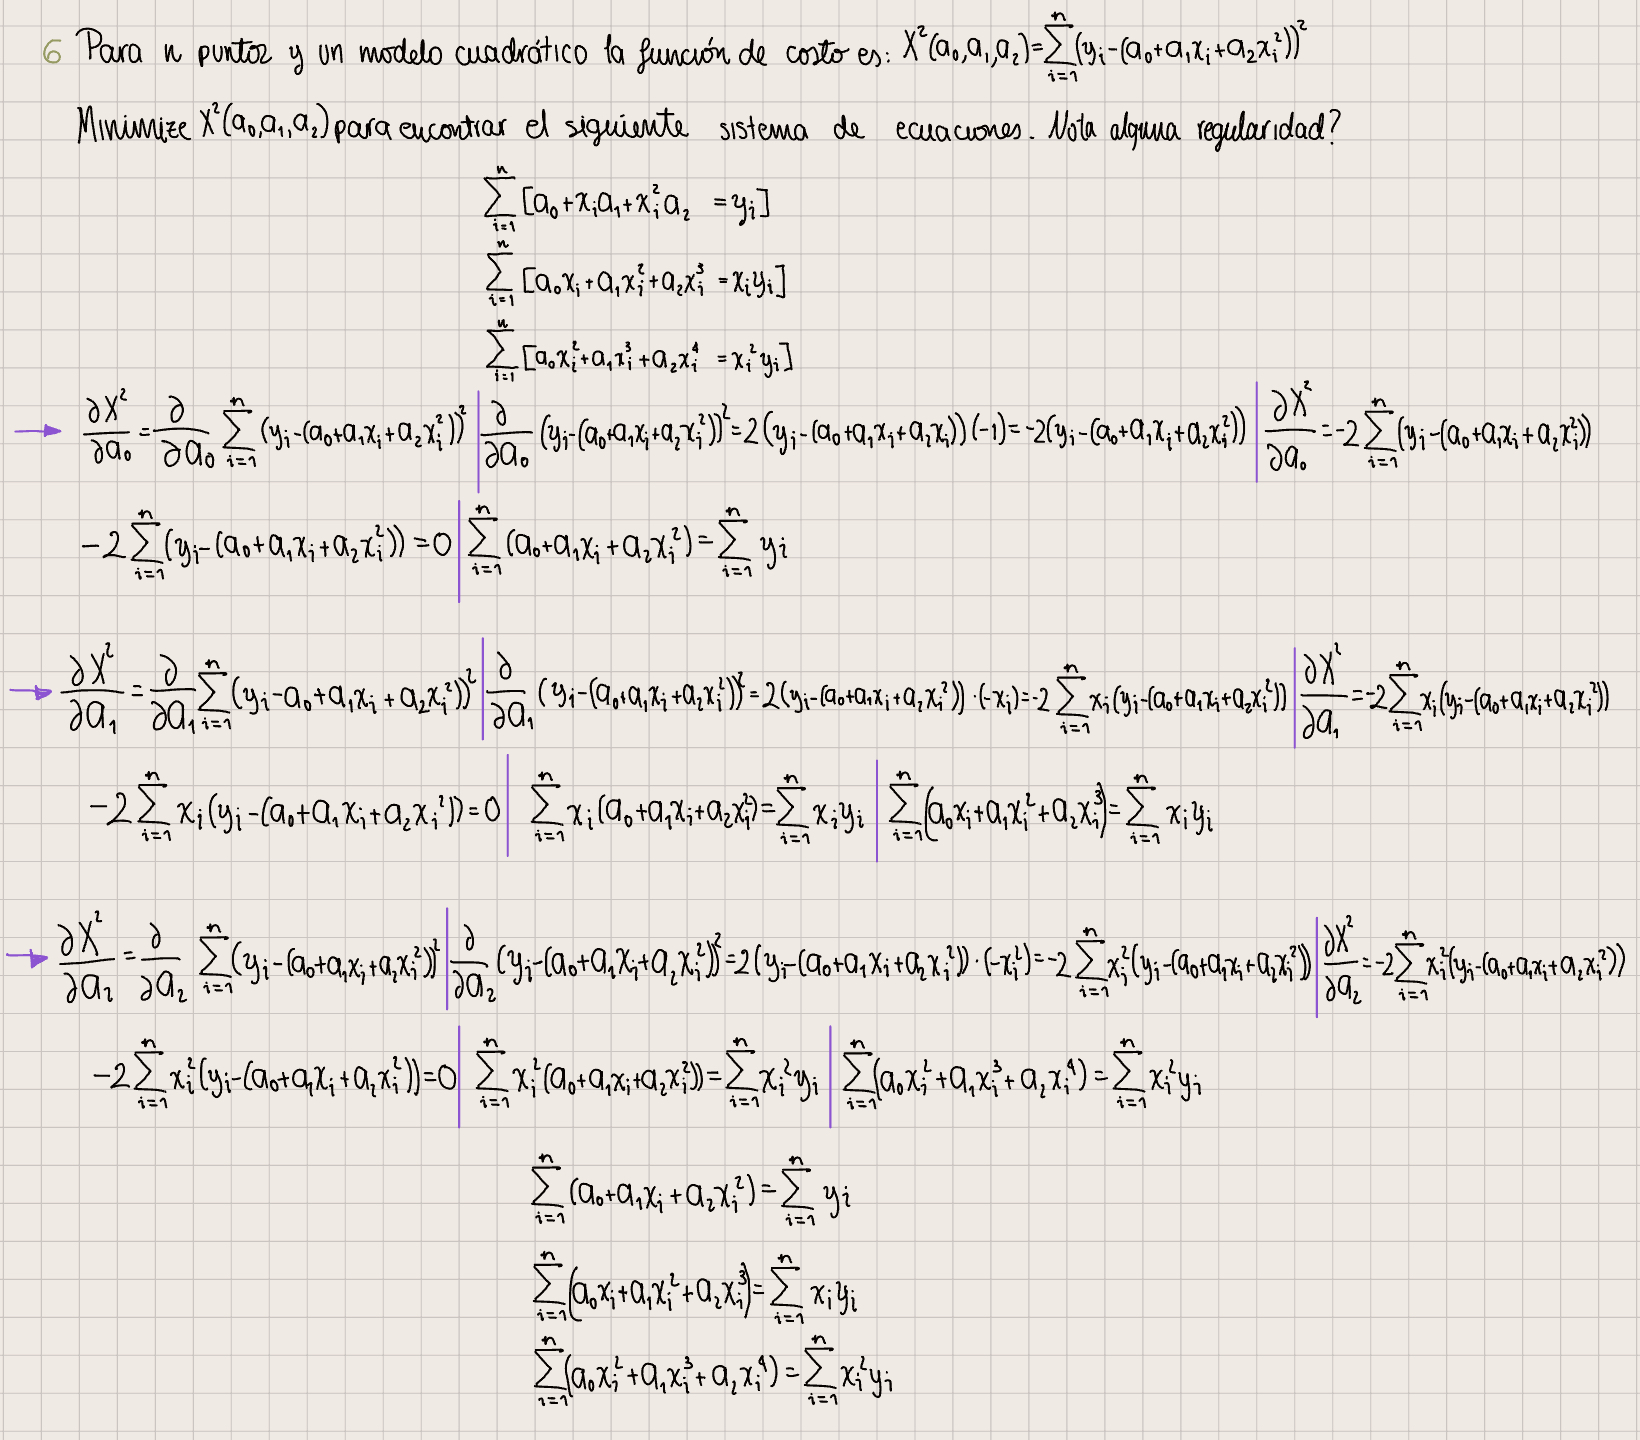 6 Para n puntos y un modelo cuadrático la función de costo es: X²(a₀,a₁,a₂)=∑ⁿᵢ₌₁(yᵢ-(a₀+a₁xᵢ+a₂xᵢ²))²
Minimize X²(a₀,a₁,a₂) para encontrar el siguiente sistema de ecuaciones. Nota alguna regularidad?
∑ⁿᵢ₌₁[a₀+xᵢa₁+xᵢ²a₂ =yᵢ]
∑ⁿᵢ₌₁[a₀xᵢ+a₁xᵢ²+a₂xᵢ³ =xᵢyᵢ]
∑ⁿᵢ₌₁[a₀xᵢ²+a₁xᵢ³+a₂xᵢ⁴ =xᵢ²yᵢ]
→ ∂X²/∂a₀=∂/∂a₀ ∑ⁿᵢ₌₁(yᵢ-(a₀+a₁xᵢ+a₂xᵢ²))² | ∂/∂a₀ (yᵢ-(a₀+a₁xᵢ+a₂xᵢ²))²=2(yᵢ-(a₀+a₁xᵢ+a₂xᵢ))(-1)=-2(yᵢ-(a₀+a₁xᵢ+a₂xᵢ²)) | ∂X²/∂a₀=-2∑ⁿᵢ₌₁(yᵢ-(a₀+a₁xᵢ+a₂xᵢ²))
-2∑ⁿᵢ₌₁(yᵢ-(a₀+a₁xᵢ+a₂xᵢ²))=0 | ∑ⁿᵢ₌₁(a₀+a₁xᵢ+a₂xᵢ²)=∑ⁿᵢ₌₁ yᵢ
→ ∂X²/∂a₁=∂/∂a₁ ∑ⁿᵢ₌₁(yᵢ-a₀+a₁xᵢ+a₂xᵢ²))² | ∂/∂a₁ (yᵢ-(a₀+a₁xᵢ+a₂xᵢ²))²=2(yᵢ-(a₀+a₁xᵢ+a₂xᵢ²))·(-xᵢ)=-2∑ⁿᵢ₌₁xᵢ(yᵢ-(a₀+a₁xᵢ+a₂xᵢ²)) | ∂X²/∂a₁=-2∑ⁿᵢ₌₁xᵢ(yᵢ-(a₀+a₁xᵢ+a₂xᵢ²))
-2∑ⁿᵢ₌₁ xᵢ(yᵢ-(a₀+a₁xᵢ+a₂xᵢ²))=0 | ∑ⁿᵢ₌₁ xᵢ(a₀+a₁xᵢ+a₂xᵢ²)=∑ⁿᵢ₌₁ xᵢyᵢ | ∑ⁿᵢ₌₁(a₀xᵢ+a₁xᵢ²+a₂xᵢ³)=∑ⁿᵢ₌₁ xᵢyᵢ
→ ∂X²/∂a₂=∂/∂a₂ ∑ⁿᵢ₌₁(yᵢ-(a₀+a₁xᵢ+a₂xᵢ²))² | ∂/∂a₂ (yᵢ-(a₀+a₁xᵢ+a₂xᵢ²))²=2(yᵢ-(a₀+a₁xᵢ+a₂xᵢ²))·(-xᵢ²)=-2∑ⁿᵢ₌₁xᵢ²(yᵢ-(a₀+a₁xᵢ+a₂xᵢ²)) | ∂X²/∂a₂=-2∑ⁿᵢ₌₁xᵢ²(yᵢ-(a₀+a₁xᵢ+a₂xᵢ²))
-2∑ⁿᵢ₌₁ xᵢ²(yᵢ-(a₀+a₁xᵢ+a₂xᵢ²))=0 | ∑ⁿᵢ₌₁ xᵢ²(a₀+a₁xᵢ+a₂xᵢ²))=∑ⁿᵢ₌₁xᵢ²yᵢ | ∑ⁿᵢ₌₁(a₀xᵢ²+a₁xᵢ³+a₂xᵢ⁴)=∑ⁿᵢ₌₁ xᵢ²yᵢ
∑ⁿᵢ₌₁(a₀+a₁xᵢ+a₂xᵢ²)=∑ⁿᵢ₌₁ yᵢ
∑ⁿᵢ₌₁(a₀xᵢ+a₁xᵢ²+a₂xᵢ³)=∑ⁿᵢ₌₁ xᵢyᵢ
∑ⁿᵢ₌₁(a₀xᵢ²+a₁xᵢ³+a₂xᵢ⁴)=∑ⁿᵢ₌₁ xᵢ²yᵢ